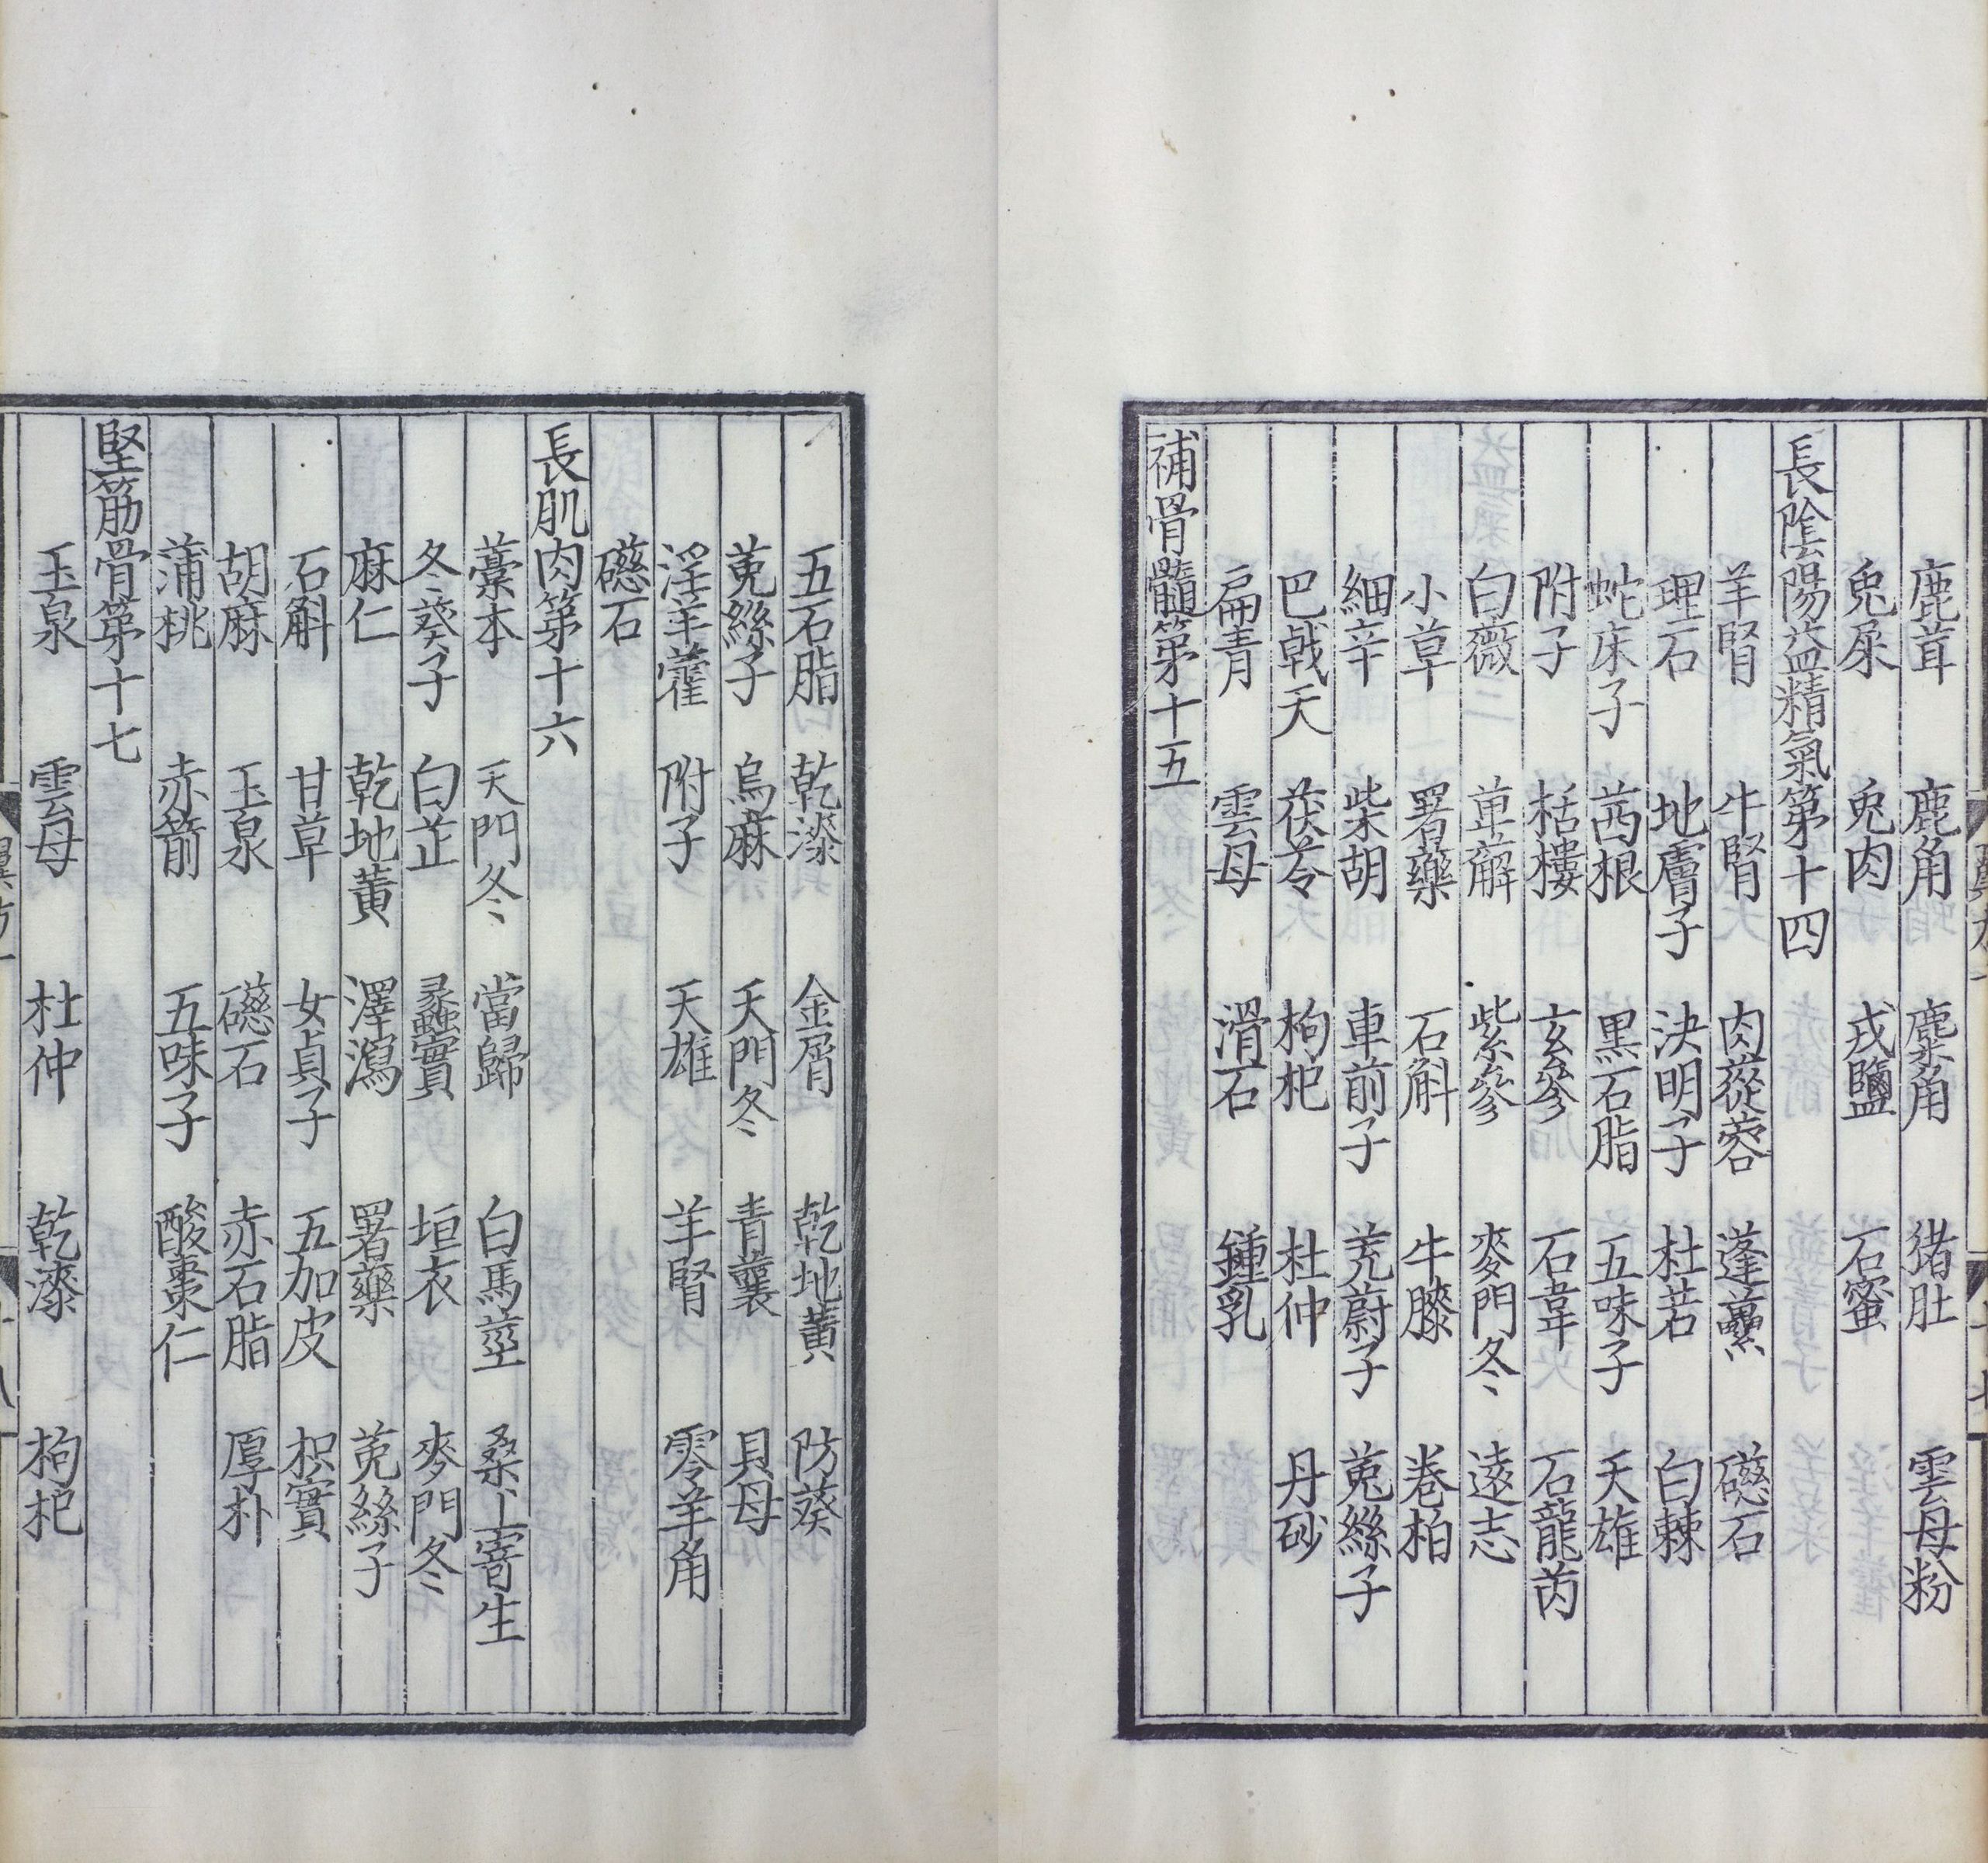 鹿茸 鹿角 麋角 猪肚 雲母粉
兔屎 兔肉 戎鹽 石蜜
長陰陽益精氣第十四
羊腎 牛腎 肉蓯蓉 蓬虆 礠石
理石 地膚子 決明子 杜若 白棘
蛇床子 茜根 黑石脂 五味子 天雄
附子 栝樓 玄參 石韋 石龍芮
白薇 萆薢 紫參 麥門冬 遠志
小草 署藥 石斛 牛膝 卷柏
細辛 柴胡 車前子 茺蔚子 菟絲子
巴戟天 茯苓 枸杞 杜仲 丹砂
扁青 雲母 滑石 鍾乳
補骨髓第十五
五石脂 乾漆 金屑 乾地黃 防葵
菟絲子 烏麻 天門冬 青蘘 貝母
淫羊藿 附子 天雄 羊腎 零羊角
礠石
長肌肉第十六
藁本 天門冬 當歸 白馬莖 桑上寄生
冬葵子 白芷 蠡實 垣衣 麥門冬
麻仁 乾地黃 澤瀉 署藥 菟絲子
石斛 甘草 女貞子 五加皮 枳實
胡麻 玉泉 礠石 赤石脂 厚朴
蒲桃 赤箭 五味子 酸棗仁
堅筋骨第十七
玉泉 雲母 杜仲 乾漆 枸杞